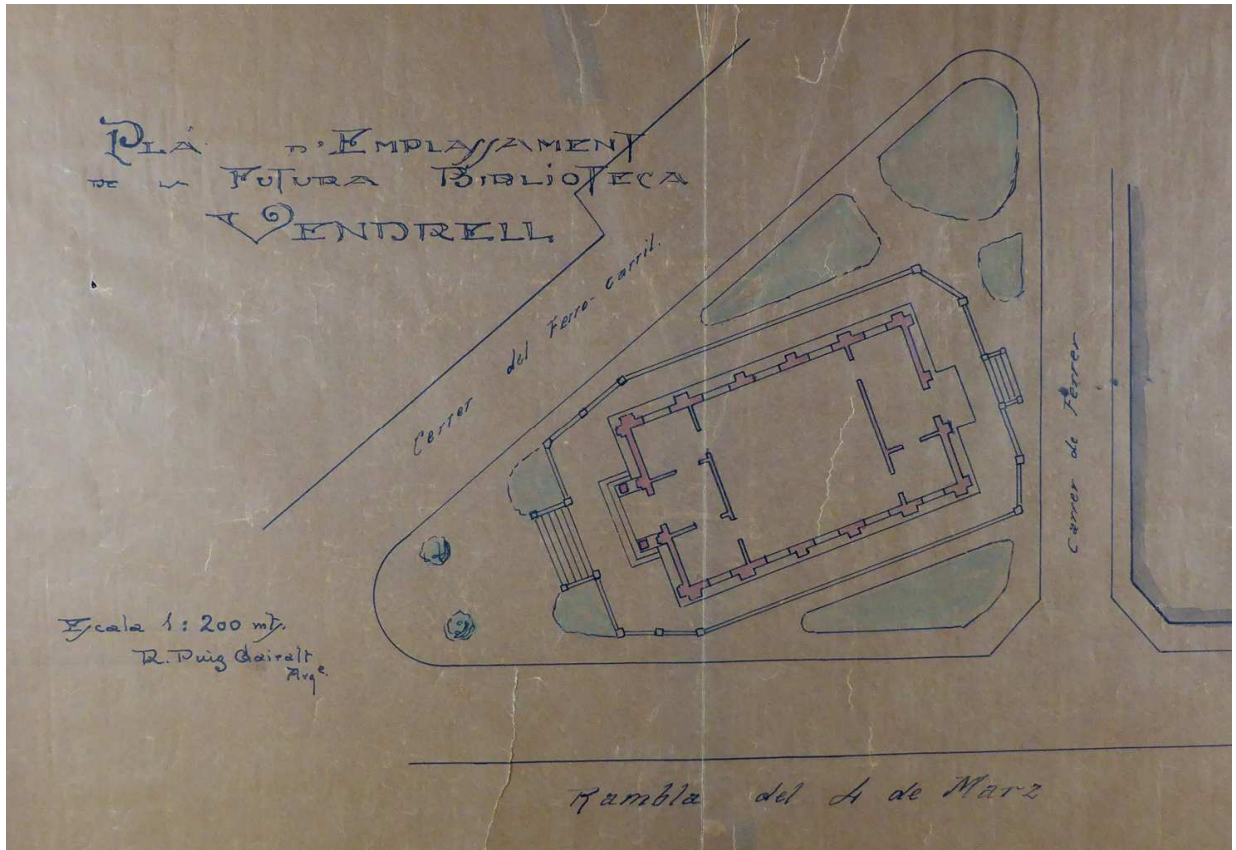 PLÀ D'EMPLASSAMENT
DE LA FUTURA BIBLIOTECA
VENDRELL
Carrer del Ferro-carril.
Carrer de Ferrer
Escala 1:200 mts.
R. Puig Gairalt
Arqe.
Rambla del 4 de Marz